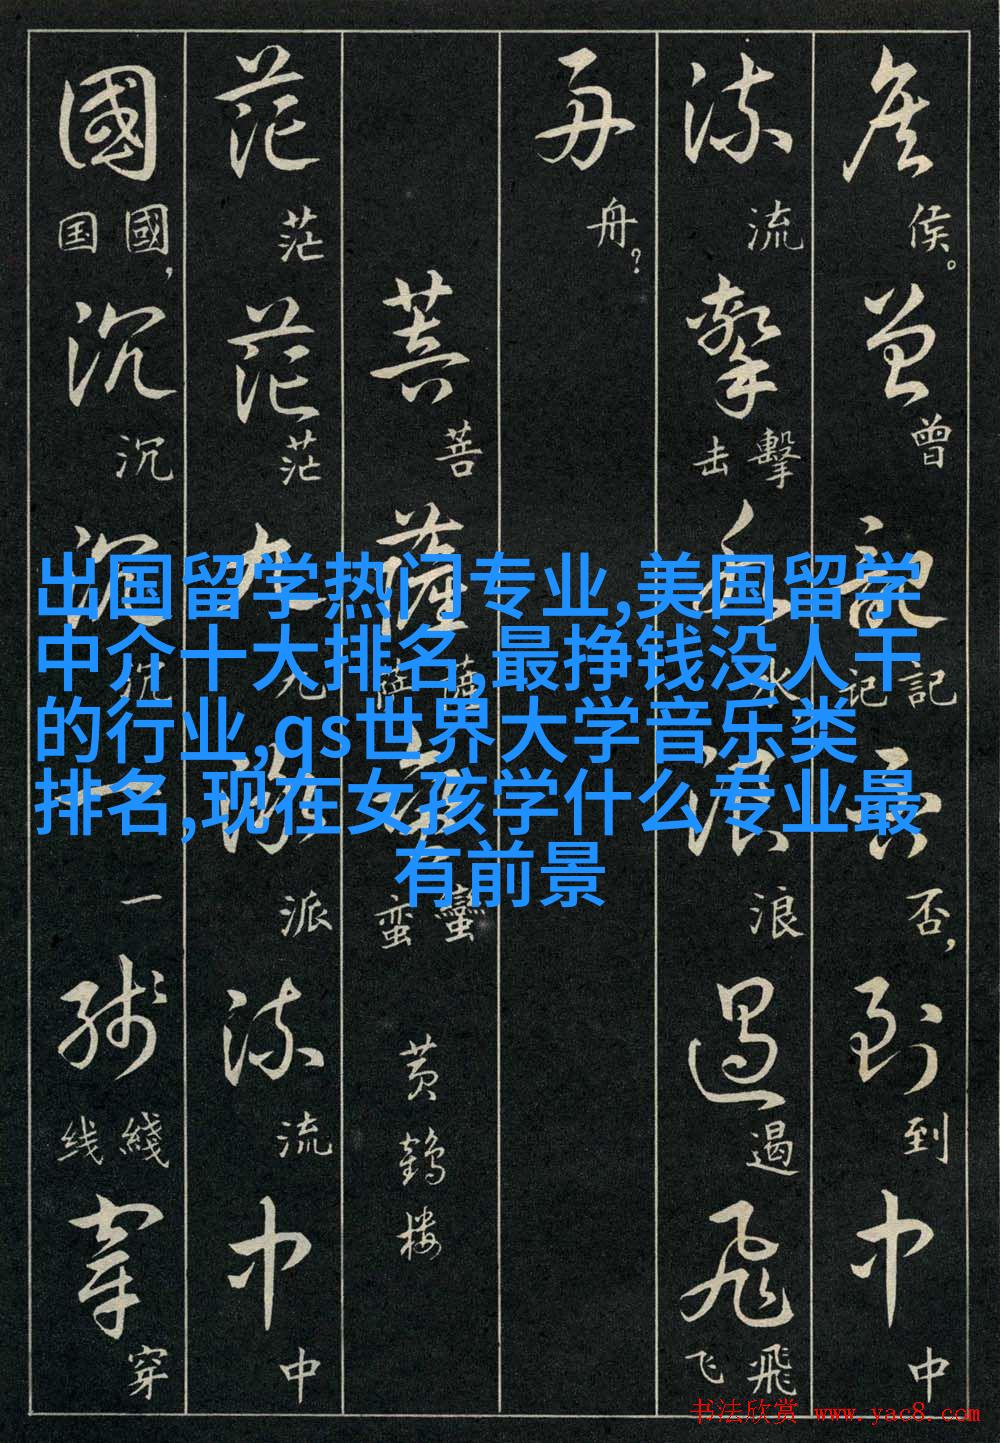 侯。曾記记否,到中
流擊击水浪遏飛飞
舟?
菩薩蛮蠻 黄鹤楼
茫茫九派流中
國国,沉沉一綫线穿
出国留学热门专业,美国留学
中介十大排名,最挣钱没人干
的行业,qs世界大学音乐类
排名,现在女孩学什么专业最
有前景
书法欣赏 www.yac8.com